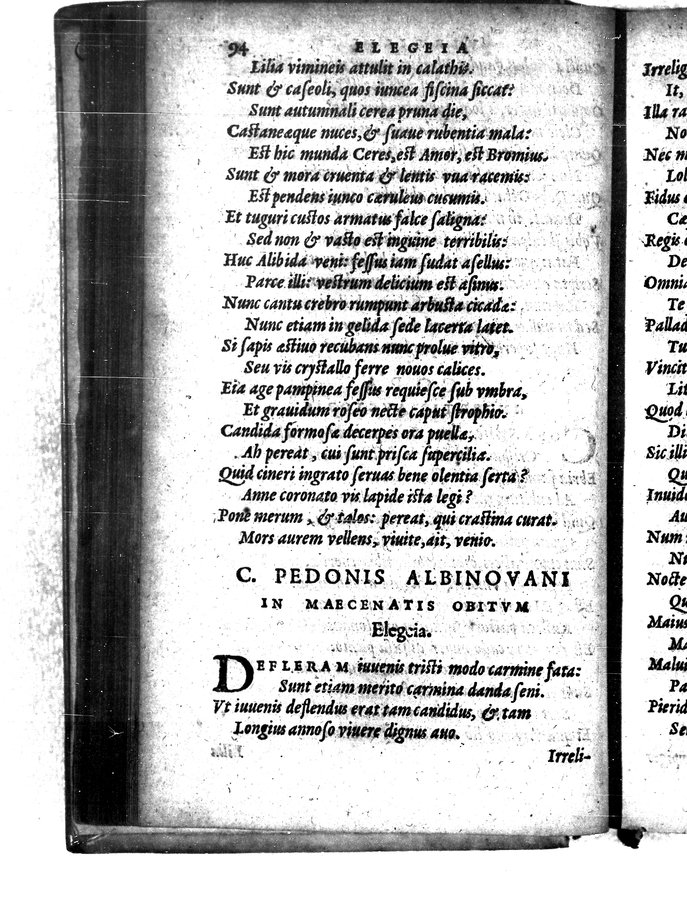 94 ELEGEIA
Lilia vimineis attulit in calathis.
Sunt & caſeoli, quos iuncea fiſcina ſiccat:
Sunt autumnali cerea pruna die,
Caſtaneæque nuces, & ſuaue rubentia mala:
Eſt hic munda Ceres, eſt Amor, eſt Bromius.
Sunt & mora cruenta & lentis vua racemis:
Eſt pendens iunco cæruleus cucumis.
Et tuguri cuſtos armatus falce ſaligna:
Sed non & vaſto eſt inguine terribilis:
Huc Alibida veni: feſſus iam ſudat aſellus:
Parce illi: veſtrum delicium eſt aſinus.
Nunc cantu crebro rumpunt arbuſta cicadæ:
Nunc etiam in gelida ſede lacerta latet.
Si ſapis æſtiuo recubans nunc prolue vitro,
Seu vis cryſtallo ferre nouos calices.
Eia age pampinea feſſus requieſce ſub vmbra,
Et grauidum roſeo necte caput ſtrophio.
Candida formoſæ decerpes ora puellæ,
Ah pereat, cui ſunt priſca ſupercilia.
Quid cineri ingrato ſeruas bene olentia ſerta?
Anne coronato vis lapide iſta legi?
Pone merum, & talos: pereat, qui craſtina curat.
Mors aurem vellens, viuite, ait, venio.
C. PEDONIS ALBINOVANI
IN MAECENATIS OBITVM
Elegeia.
DEFLERAM iuuenis triſti modo carmine fata:
Sunt etiam merito carmina danda ſeni.
Vt iuuenis deflendus erat tam candidus, & tam
Longius annoſo viuere dignus auo.
Irreli-
Irrelig
It,
Illa ra
No
Nec m
Lol
Fidus e
Cæ
Regis
De
Omnia
Te
Pallad
Tu
Vincit
Lit
Quod
Di
Sic illi
Qu
Inuido
Au
Num
Nu
Nocte
Qu
Maius
Ma
Malui
Pa
Pierid
Se